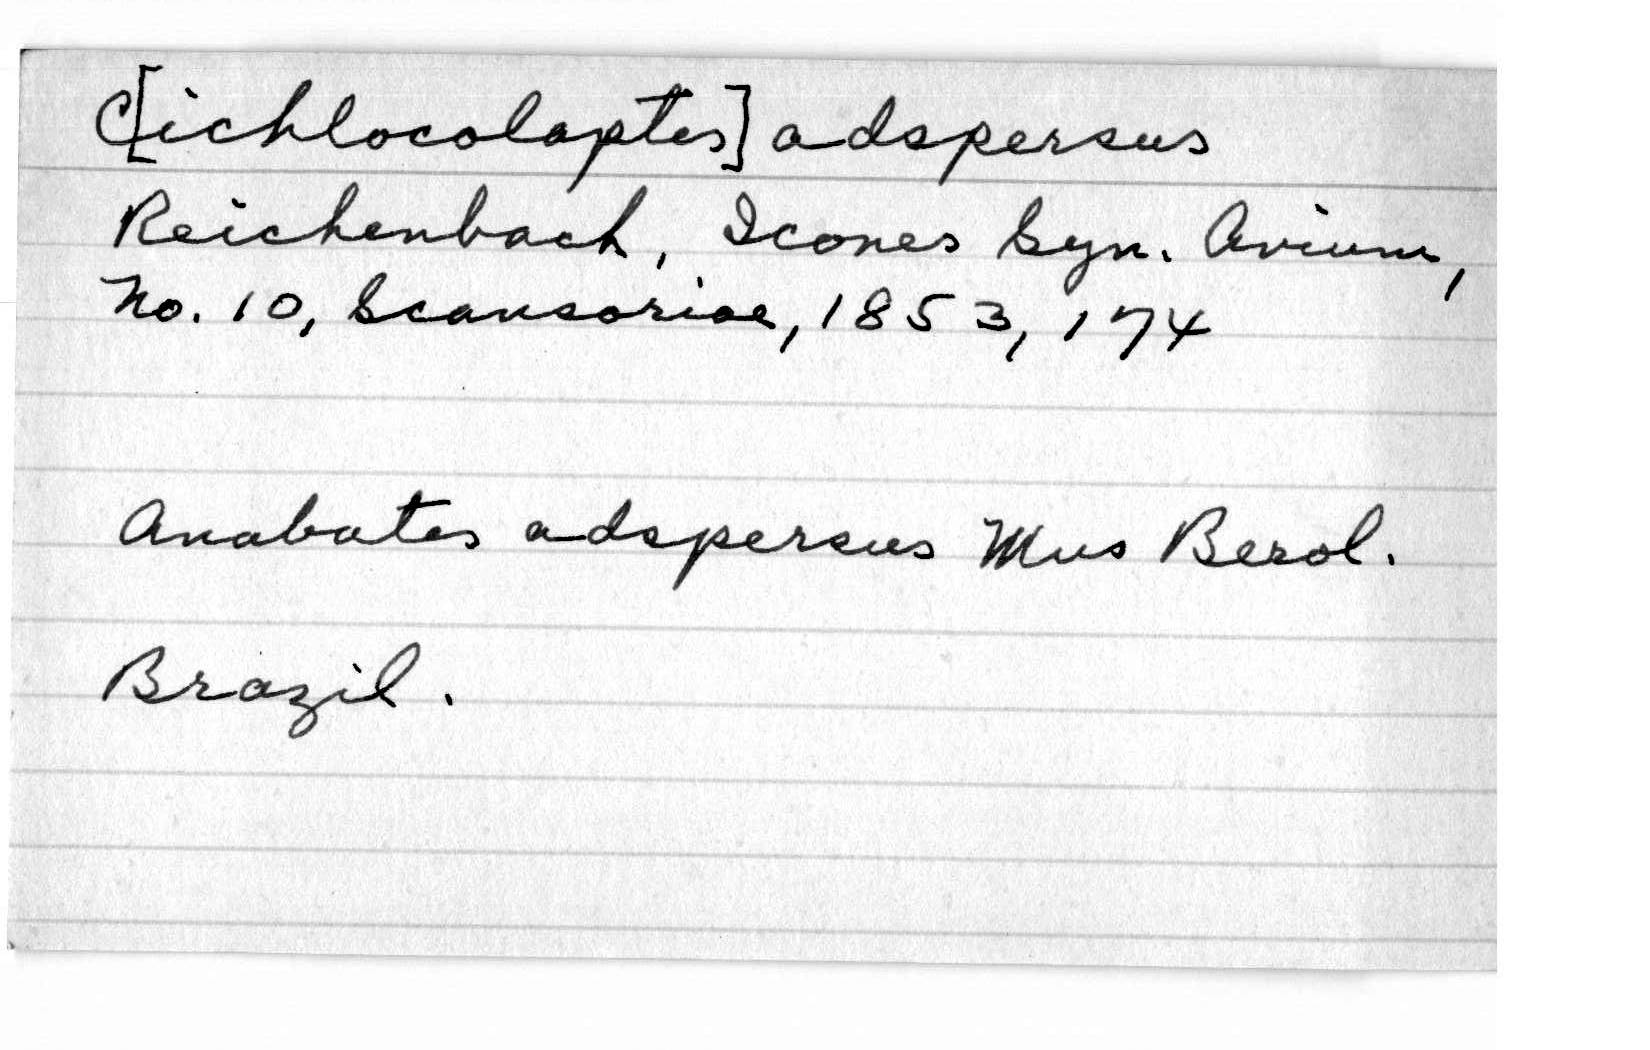 C[ichlocolaptes] adspersus
Reichenbach, Icones Syn. Avium,
No. 10, Scansoriae, 1853, 174
Anabates adspersus Mus Berol.
Brazil.